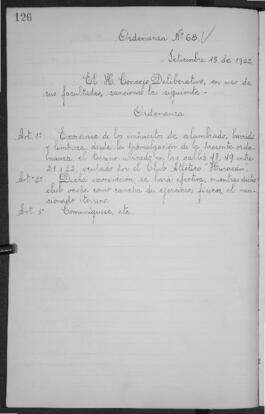 126
Ordenanza Nº 68.//
Setiembre 15 de 1922
El H. Concejo Deliberativo, en uso de
sus facultades, sanciona la siguiente -
Ordenanza
Art. 1º: Exonérase de los impuestos de alumbrado, barrido
y limpieza, desde la promulgación de la presente orde-
nanza, el terreno ubicado en las calles 48, 49 entre
21 y 22, ocupado por el Club Atlético "Huracán".
Art. 2º: Dicha exoneración se hará efectiva, mientras dicho
club ocupe como cancha de ejercicios físicos, el men-
cionado terreno.
Art. 3º Comuníquese, etc.